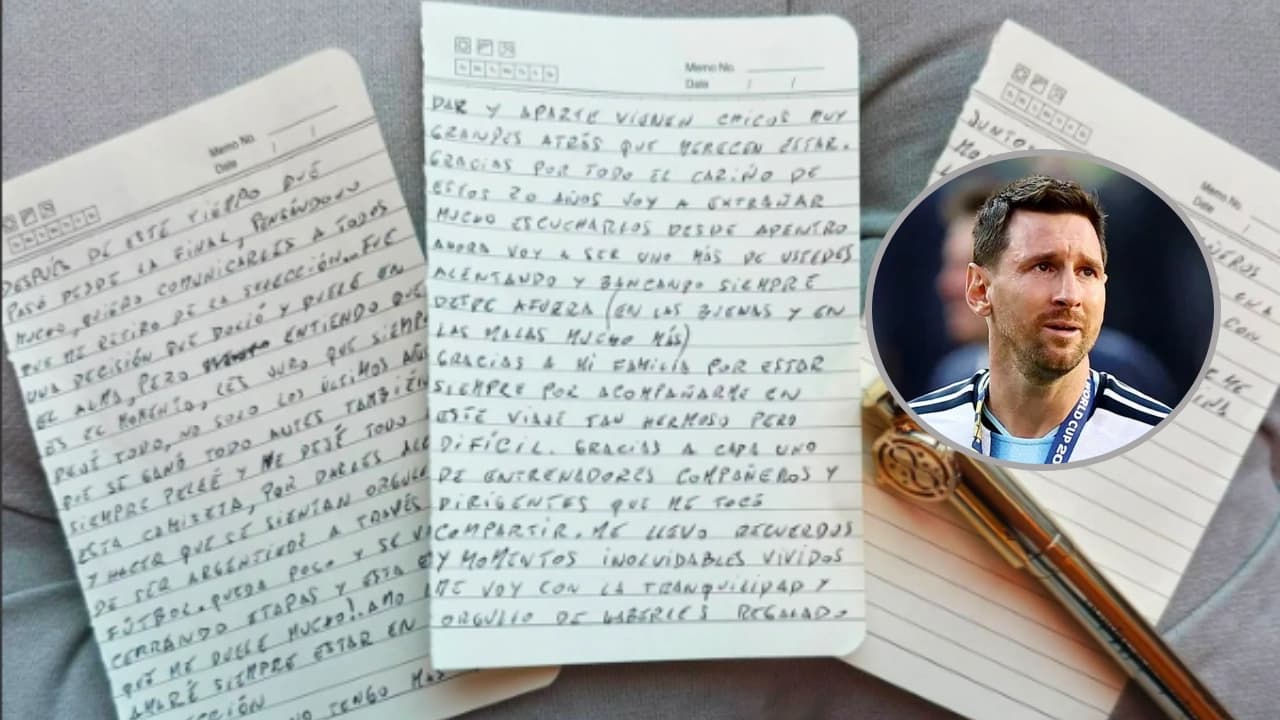 Memo No.
Date / /
DESPUÉS DE ESTE TIEMPO QUE
PASÓ DESDE LA FINAL, PENSÁNDOLO
MUCHO, QUIERO COMUNICARLES A TODOS
QUE ME RETIRO DE LA SELECCIÓN... FUE
UNA DECISIÓN QUE DOLIÓ Y DUELE EN
EL ALMA, PERO ENTIENDO QUE
ES EL MOMENTO, LES JURO QUE SIEMP
DEJÉ TODO, NO SOLO LOS ÚLTIMOS AÑOS
QUE SE GANÓ TODO ANTES TAMBIÉN
SIEMPRE PELEÉ Y ME DEJÉ TODO
ESTA CAMISETA, POR DARLES ALE
Y HACER QUE SE SIENTAN ORGULL
DE SER ARGENTINOS A TRAVÉS
FÚTBOL. QUEDA POCO Y SE V
CERRANDO ETAPAS Y ESTA E
QUE ME DUELE MUCHO!. AMO
AMARÉ SIEMPRE ESTAR EN
CCIÓN
NO TENGO MÁS
Memo No.
Date / /
DAR Y APARTE VIENEN CHICOS MUY
GRANDES ATRÁS QUE MERECEN ESTAR.
GRACIAS POR TODO EL CARIÑO DE
ESTOS 20 AÑOS VOY A EXTRAÑAR
MUCHO ESCUCHARLOS DESDE ADENTRO
AHORA VOY A SER UNO MÁS DE USTEDES
ALENTANDO Y BANCANDO SIEMPRE
DESDE AFUERA (EN LAS BUENAS Y EN
LAS MALAS MUCHO MÁS)
GRACIAS A MI FAMILIA POR ESTAR
SIEMPRE POR ACOMPAÑARME EN
ESTE VIAJE TAN HERMOSO PERO
DIFÍCIL. GRACIAS A CADA UNO
DE ENTRENADORES COMPAÑEROS Y
DIRIGENTES QUE ME TOCÓ
COMPARTIR. ME LLEVO RECUERDOS
Y MOMENTOS INOLVIDABLES VIVIDOS
ME VOY CON LA TRANQUILIDAD Y
ORGULLO DE HABERLES REGALADO
Memo No.
Date /
JUNTO
ÑEROS
CON
WORLD CUP 20